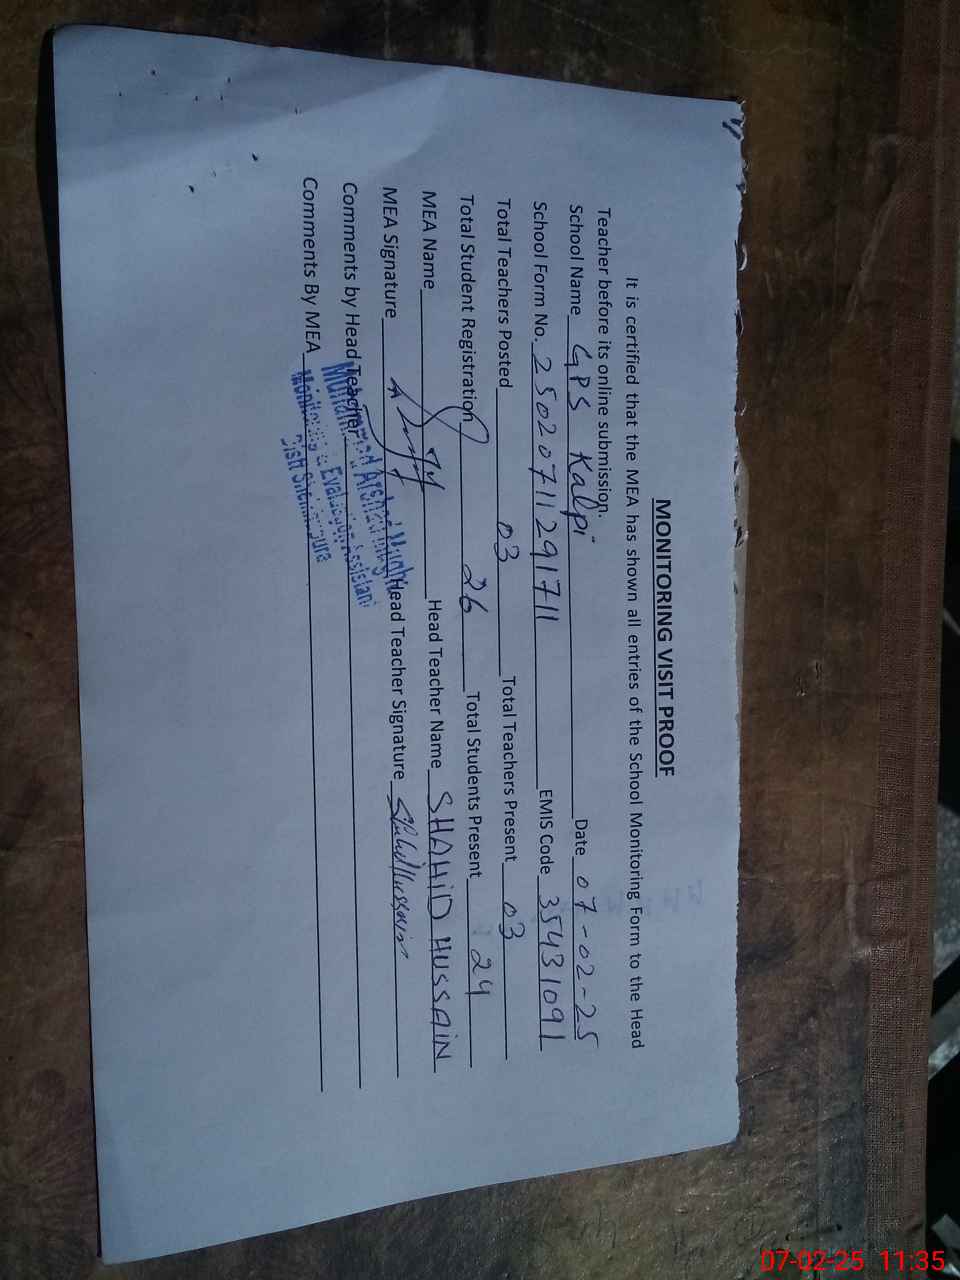 MONITORING VISIT PROOF
It is certified that the MEA has shown all entries of the School Monitoring Form to the Head
Teacher before its online submission.
School Name GPS Kalpi Date 07-02-25
School Form No. 25020711291711 EMIS Code 35431091
Total Teachers Posted 03 Total Teachers Present 03
Total Student Registration 26 Total Students Present 24
MEA Name Head Teacher Name SHAHID HUSSAIN
MEA Signature Head Teacher Signature Shahid Hussain
Comments by Head Teacher
Comments By MEA
Muhammad Arshad Mughal
Monitoring & Evaluation Assistant
Distt Sheikhupura
07-02-25 11:35